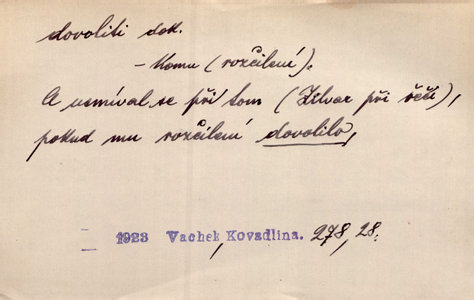 dovoliti dok.
– komu (rozčilení).
A usmíval se při tom (Žilvar při řeči),
pokud mu rozčilení dovolilo,
1923 Vachek, Kovadlina. 278, 28.